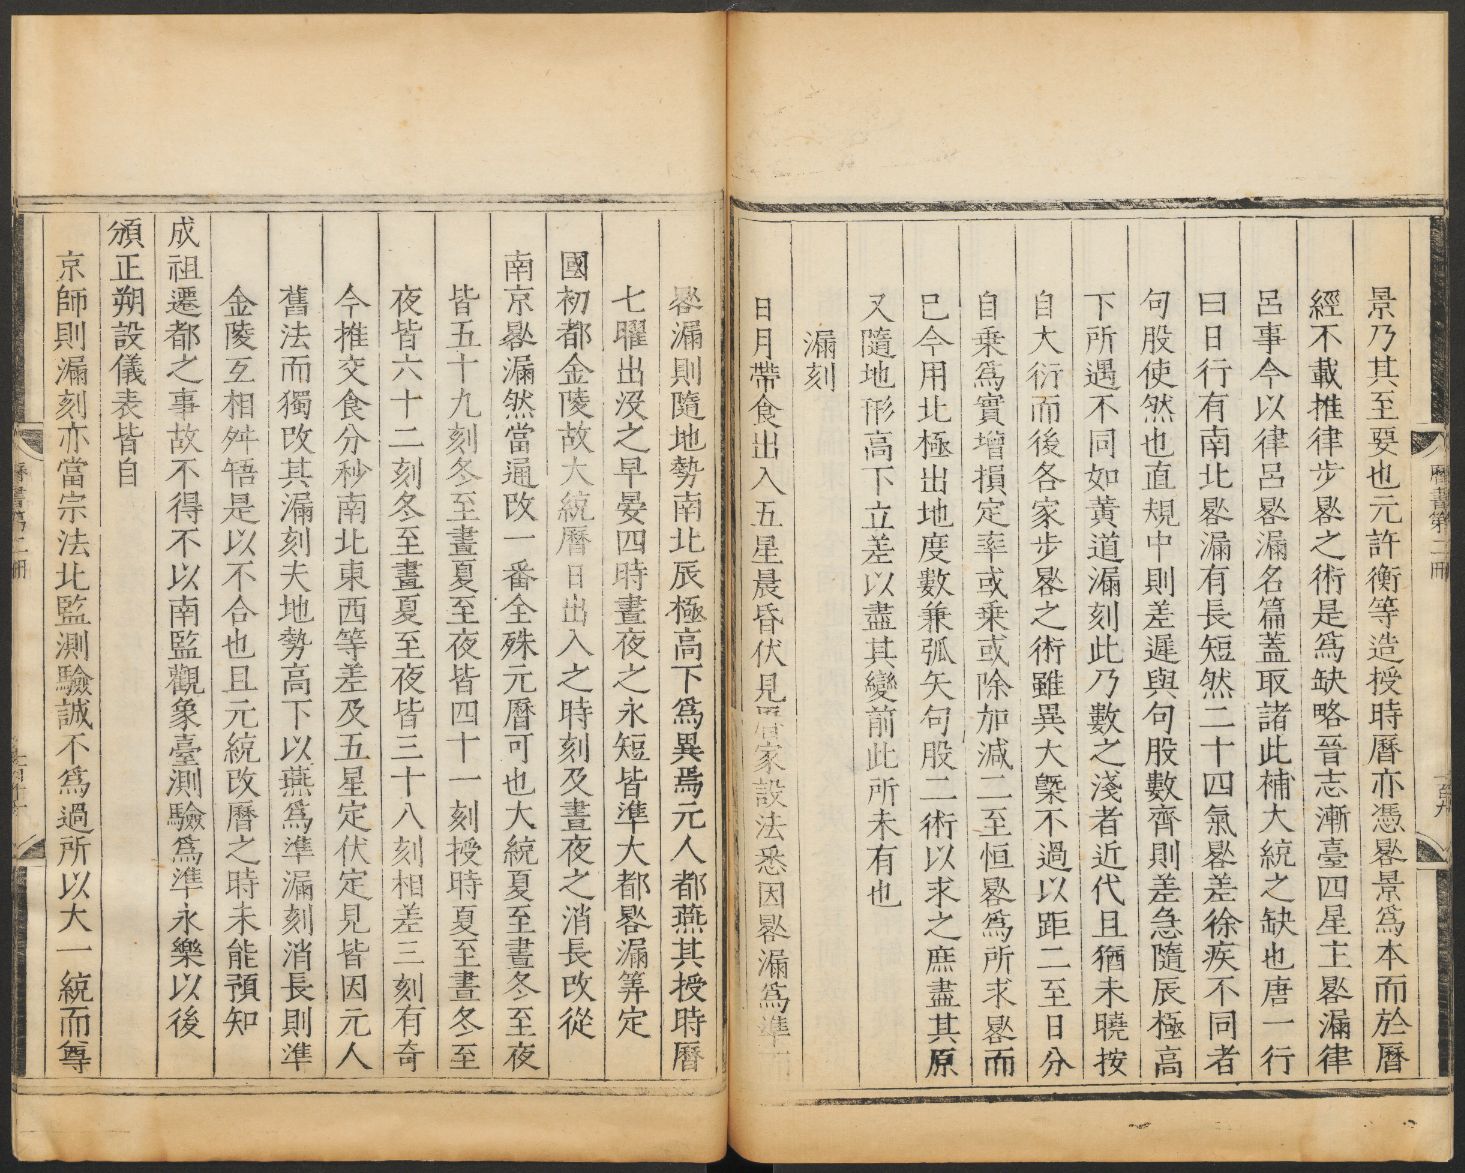 景乃其至要也元許衡等造授時曆亦憑晷景爲本而於曆
經不載推律步晷之術是爲缺略晉志漸臺四星主晷漏律
呂事今以律呂晷漏名篇蓋取諸此補大統之缺也唐一行
曰日行有南北晷漏有長短然二十四氣晷差徐疾不同者
句股使然也直規中則差遲與句股數齊則差急隨辰極高
下所遇不同如黃道漏刻此乃數之淺者近代且猶未曉按
自大衍而後各家步晷之術雖異大槩不過以距二至日分
自乘爲實增損定率或乘或除加減二至恒晷爲所求晷而
已今用北極出地度數兼弧矢句股二術以求之庶盡其原
又隨地形高下立差以盡其變前此所未有也
漏刻
日月帶食出入五星晨昏伏見曆家設法悉因晷漏爲準而
晷漏則隨地勢南北辰極高下爲異焉元人都燕其授時曆
七曜出沒之早晏四時晝夜之永短皆準大都晷漏筭定
國初都金陵故大統曆日出入之時刻及晝夜之消長改從
南京晷漏然當通改一番全殊元曆可也大統夏至晝冬至夜
皆五十九刻冬至晝夏至夜皆四十一刻授時夏至晝冬至
夜皆六十二刻冬至晝夏至夜皆三十八刻相差三刻有奇
今推交食分秒南北東西等差及五星定伏定見皆因元人
舊法而獨改其漏刻夫地勢高下以燕爲準漏刻消長則準
金陵互相舛牾是以不合也且元統改曆之時未能預知
成祖遷都之事故不得不以南監觀象臺測驗爲準永樂以後
頒正朔設儀表皆自
京師則漏刻亦當宗法北監測驗誠不爲過所以大一統而尊
曆書第二冊
百九